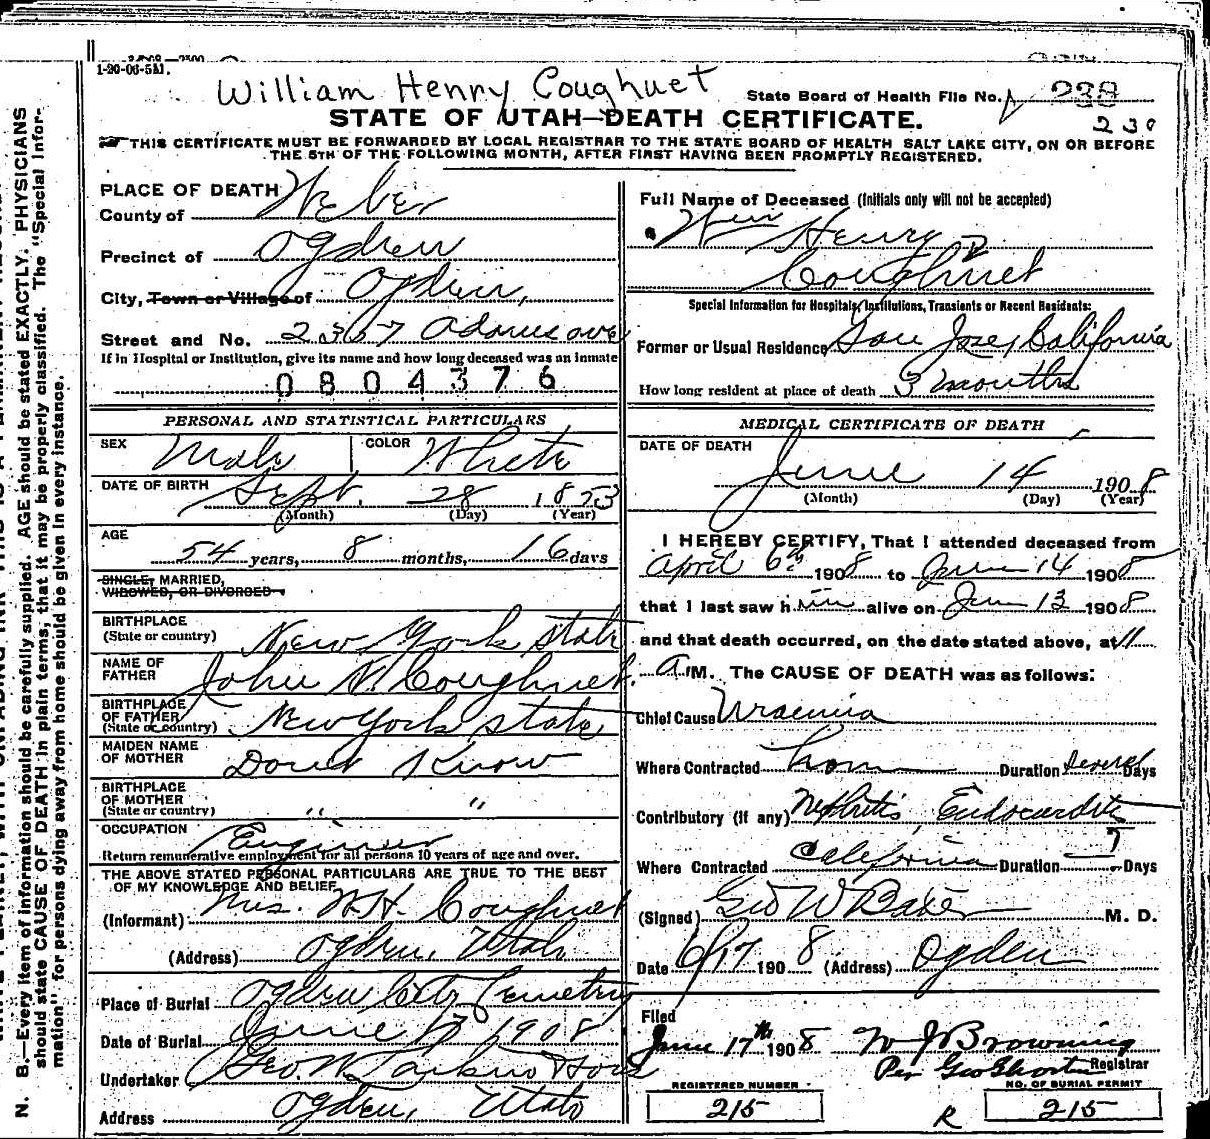 1-20-06-5M.
William Henry Coughuet
State Board of Health File No. 238
230
STATE OF UTAH—DEATH CERTIFICATE.
THIS CERTIFICATE MUST BE FORWARDED BY LOCAL REGISTRAR TO THE STATE BOARD OF HEALTH SALT LAKE CITY, ON OR BEFORE
THE 5TH OF THE FOLLOWING MONTH, AFTER FIRST HAVING BEEN PROMPTLY REGISTERED.
PLACE OF DEATH
County of Weber
Precinct of Ogden
City, Town or Village of Ogden,
Street and No. 2367 Adams ave
If in Hospital or Institution, give its name and how long deceased was an inmate
0804376
PERSONAL AND STATISTICAL PARTICULARS
SEX Male COLOR White
DATE OF BIRTH Sept. 28 1853
(Month) (Day) (Year)
AGE
54 years, 8 months, 16 days
SINGLE, MARRIED,
WIDOWED, OR DIVORCED
BIRTHPLACE
(State or country) New York state
NAME OF
FATHER John N. Coughuet.
BIRTHPLACE
OF FATHER
(State or country) New York state
MAIDEN NAME
OF MOTHER Dont Know
BIRTHPLACE
OF MOTHER
(State or country) " "
OCCUPATION Engineer
Return remunerative employment for all persons 10 years of age and over.
THE ABOVE STATED PERSONAL PARTICULARS ARE TRUE TO THE BEST
OF MY KNOWLEDGE AND BELIEF
(Informant) Mrs. W.H. Coughuet
(Address) Ogden, Utah
Place of Burial Ogden City Cemetery
Date of Burial June 17 1908
Undertaker Geo. W. Larkin
Address Ogden, Utah
Full Name of Deceased (Initials only will not be accepted)
Wm Henry
Coughuet
Special Information for Hospitals, Institutions, Transients or Recent Residents:
Former or Usual Residence San Jose, California
How long resident at place of death 3 months
MEDICAL CERTIFICATE OF DEATH
DATE OF DEATH
June 14 1908
(Month) (Day) (Year)
I HEREBY CERTIFY, That I attended deceased from
April 6th 1908 to June 14 1908
that I last saw him alive on June 13 1908
and that death occurred, on the date stated above, at 11
A M. The CAUSE OF DEATH was as follows:
Chief Cause Uraemia
Where Contracted home Duration several Days
Contributory (if any) Nephritis, Endocarditis
Where Contracted California Duration ? Days
(Signed) Geo W Baker M. D.
Date 6/17 1908 (Address) Ogden
Filed
June 17th 1908 W J Browning
Per Geo Registrar
REGISTERED NUMBER
215
NO. OF BURIAL PERMIT
R 215
N. B.—Every item of information should be carefully supplied. AGE should be stated EXACTLY. PHYSICIANS
should state CAUSE OF DEATH in plain terms, that it may be properly classified. The "Special Infor-
mation" for persons dying away from home should be given in every instance.